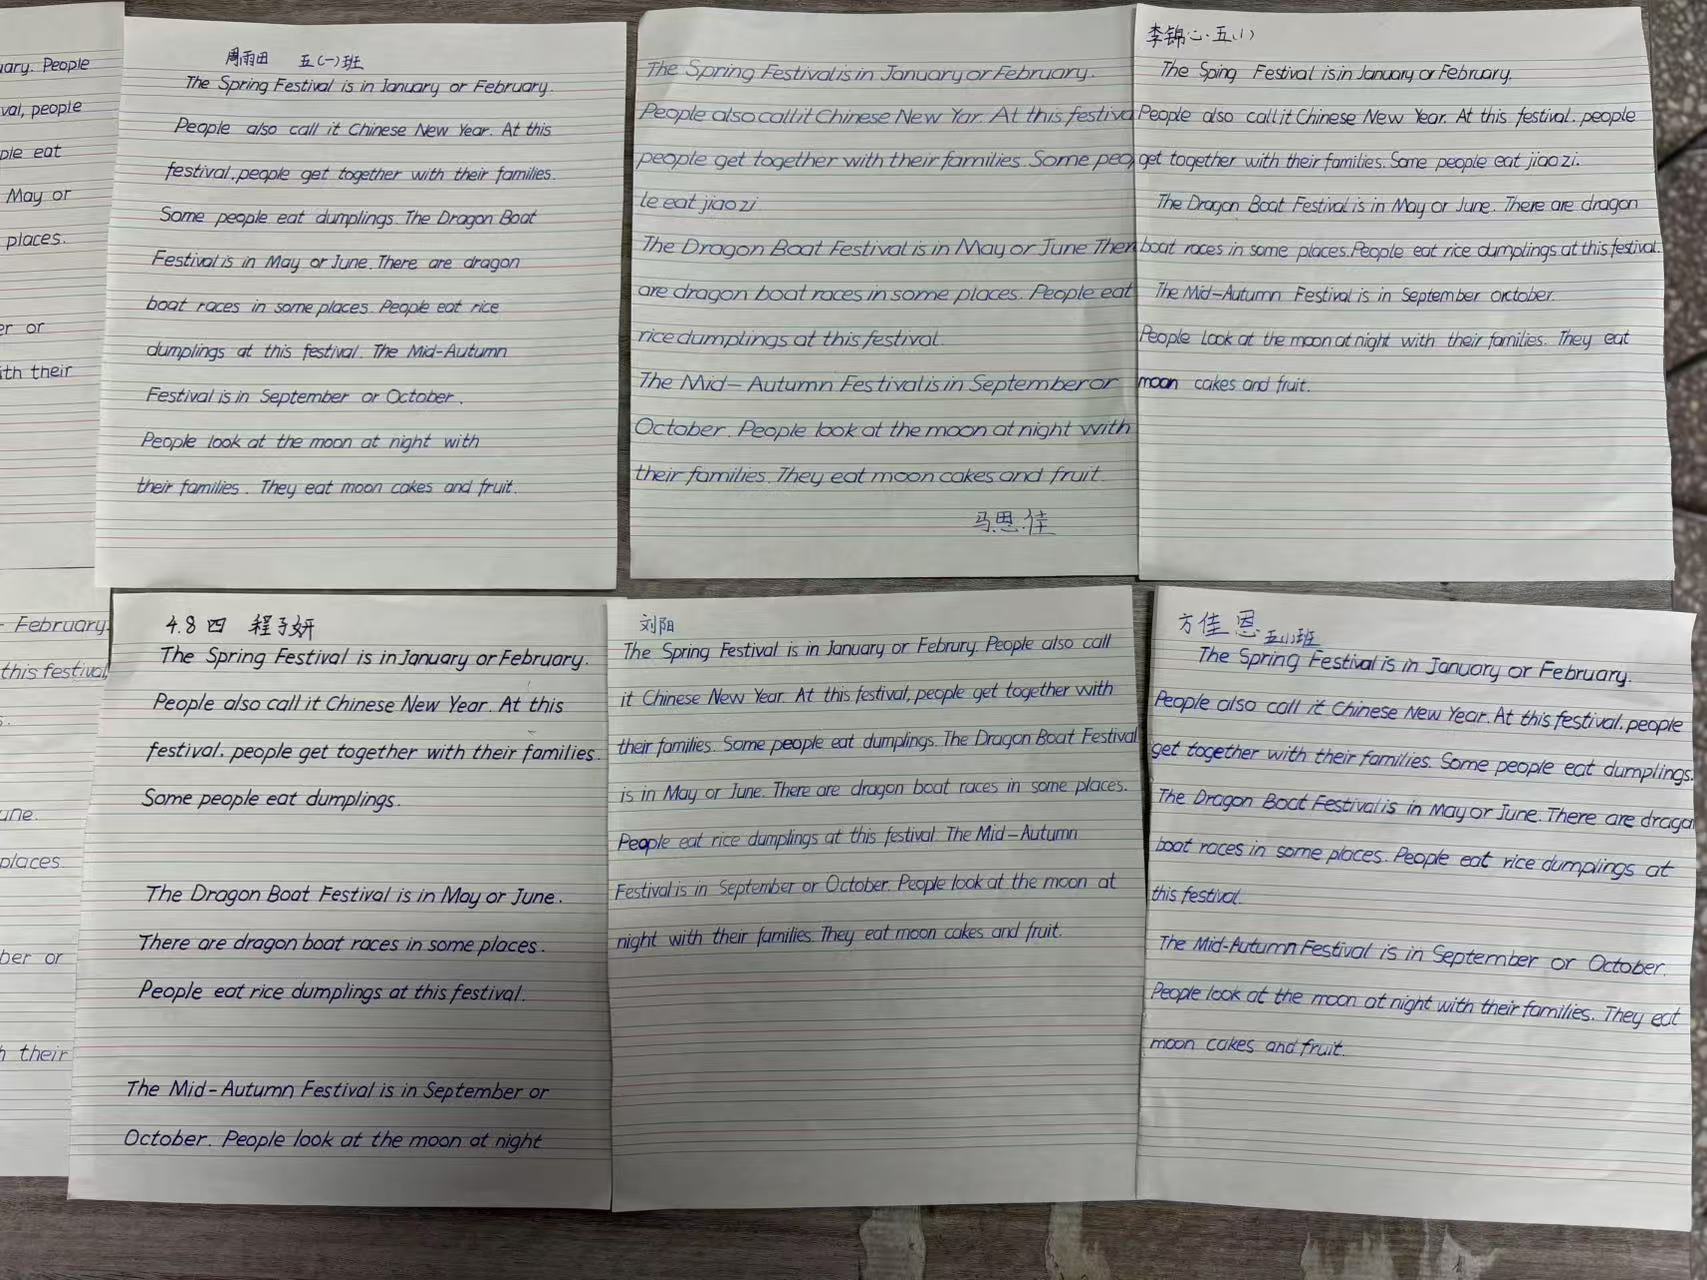 uary. People
val, people
ple eat
May or
places.
er or
ith their
周雨田 五(一)班
The Spring Festival is in January or February.
People also call it Chinese New Year. At this
festival, people get together with their families.
Some people eat dumplings. The Dragon Boat
Festival is in May or June. There are dragon
boat races in some places. People eat rice
dumplings at this festival. The Mid-Autumn
Festival is in September or October.
People look at the moon at night with
their families. They eat moon cakes and fruit.
The Spring Festival is in January or February.
People also call it Chinese New Yar. At this festiva
people get together with their families. Some peop
le eat jiao zi
The Dragon Boat Festival is in May or June Ther
are dragon boat races in some places. People eat
rice dumplings at this festival.
The Mid-Autumn Festival is in September or
October. People look at the moon at night with
their families. They eat moon cakes and fruit.
马思佳
李锦心 五(1)
The Sping Festival is in January or February.
People also call it Chinese New Year. At this festival, people
get together with their families. Some people eat jiao zi.
The Dragon Boat Festival is in May or June. There are dragon
boat races in some places. People eat rice dumplings at this festival.
The Mid-Autumn Festival is in September orctober.
People look at the moon at night with their families. They eat
moon cakes and fruit.
February.
this festival,
une.
places.
ber or
h their
4.8 四 程予妍
The Spring Festival is in January or February.
People also call it Chinese New Year. At this
festival, people get together with their families.
Some people eat dumplings.
The Dragon Boat Festival is in May or June.
There are dragon boat races in some places.
People eat rice dumplings at this festival.
The Mid-Autumn Festival is in September or
October. People look at the moon at night
刘阳
The Spring Festival is in January or Februry. People also call
it Chinese New Year. At this festival, people get together with
their families. Some people eat dumplings. The Dragon Boat Festival
is in May or June. There are dragon boat races in some places.
People eat rice dumplings at this festival. The Mid-Autumn
Festival is in September or October. People look at the moon at
night with their families. They eat moon cakes and fruit.
方佳恩 五(1)班
The Spring Festival is in January or February.
People also call it Chinese New Year. At this festival, people
get together with their families. Some people eat dumplings.
The Dragon Boat Festival is in May or June. There are drago
boat races in some places. People eat rice dumplings at
this festival.
The Mid-Autumn Festival is in September or October.
People look at the moon at night with their families. They eat
moon cakes and fruit.